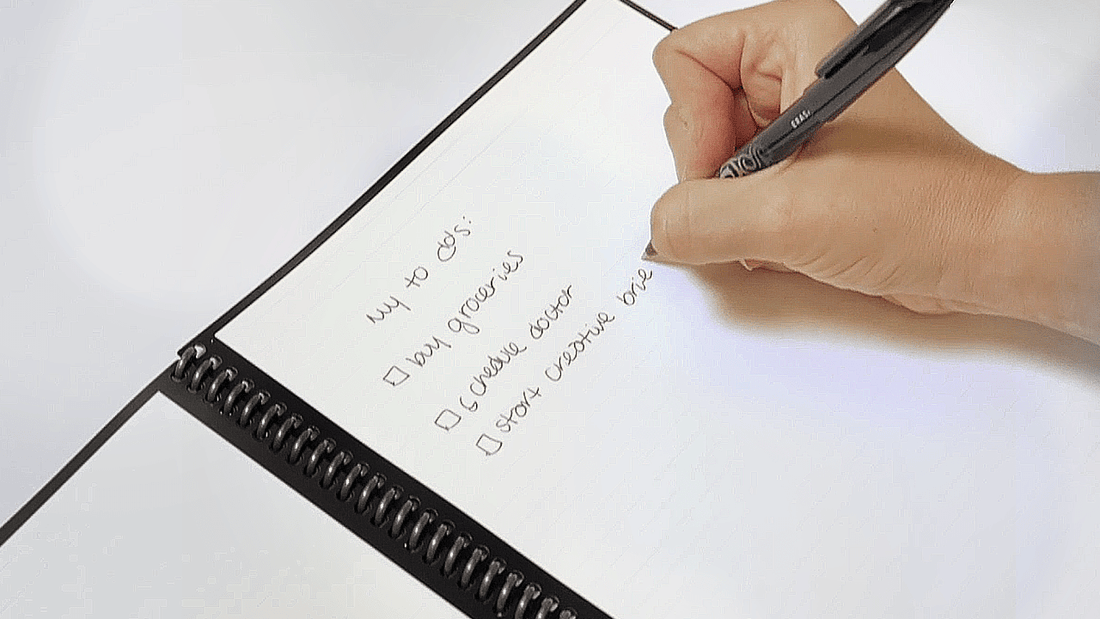 my to do's:
☐ buy groceries
☐ schedule doctor
☐ start creative brie
ERAS